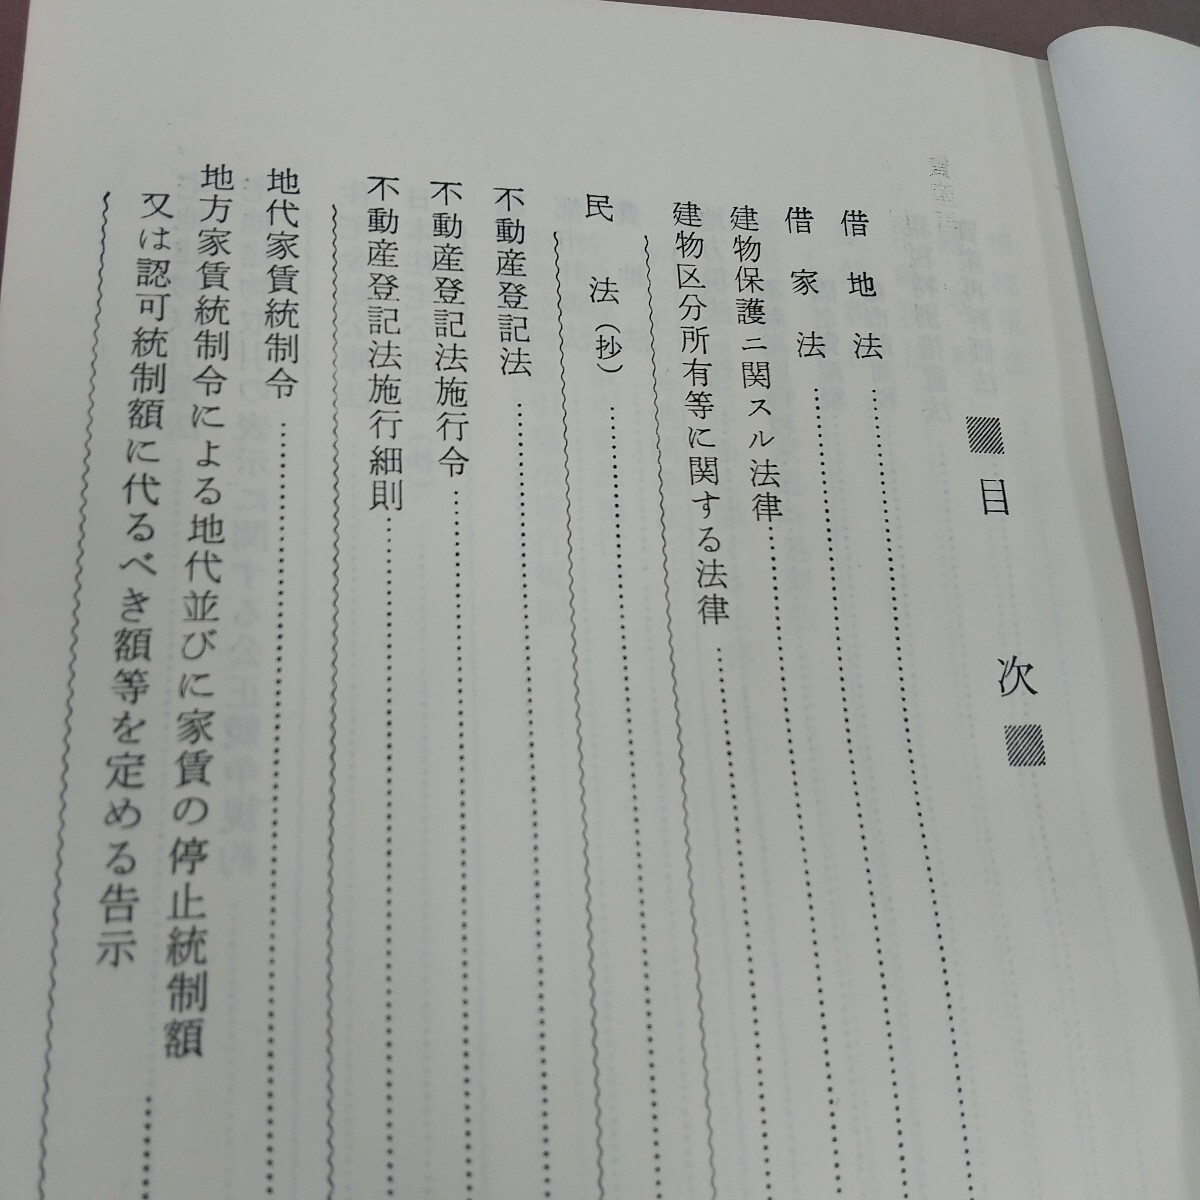 目次
借地法
借家法
建物保護ニ関スル法律
建物区分所有等に関する法律
民法(抄)
不動産登記法
不動産登記法施行令
不動産登記法施行細則
地代家賃統制令
地方家賃統制令による地代並びに家賃の停止統制額
又は認可統制額に代るべき額等を定める告示